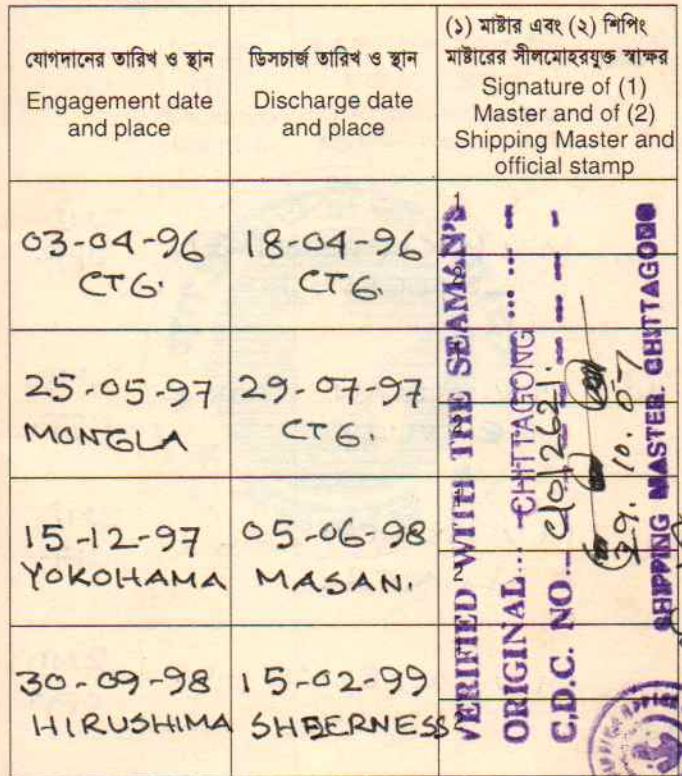 যোগদানের তারিখ ও স্থান
Engagement date
and place
ডিসচার্জ তারিখ ও স্থান
Discharge date
and place
(১) মাষ্টার এবং (২) শিপিং
মাষ্টারের সীলমোহরযুক্ত স্বাক্ষর
Signature of (1)
Master and of (2)
Shipping Master and
official stamp
03-04-96
CTG.
18-04-96
CTG.
1
2
25-05-97
MONGLA
29-07-97
CTG.
1
2
15-12-97
YOKOHAMA
05-06-98
MASAN.
1
2
30-09-98
HIRUSHIMA
15-02-99
SHEERNESS
1
2
VERIFIED WITH THE SEAMAN'S
ORIGINAL... CHITTAGONG ... ...
C.D.C. NO... C/O/2621.
29.10.07
SHIPPING MASTER. CHITTAGONG